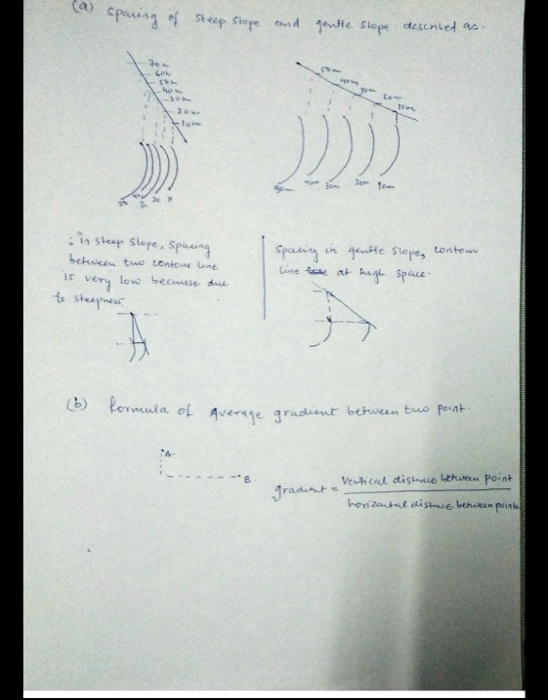 (a) Spacing of steep slope and gentle slope described as.
70m
60m
50m
40m
30m
20m
10m
50m
40m
30m
20m
10m
50m 40m 30m 20m 10m
: in steep slope, spacing
between two contour line
is very low because due
to steepness
spacing in gentle slope, contour
line at high space.
(b) formula of Average gradient between two point.
A
B
gradient = Vertical distance between point
horizontal distance between points